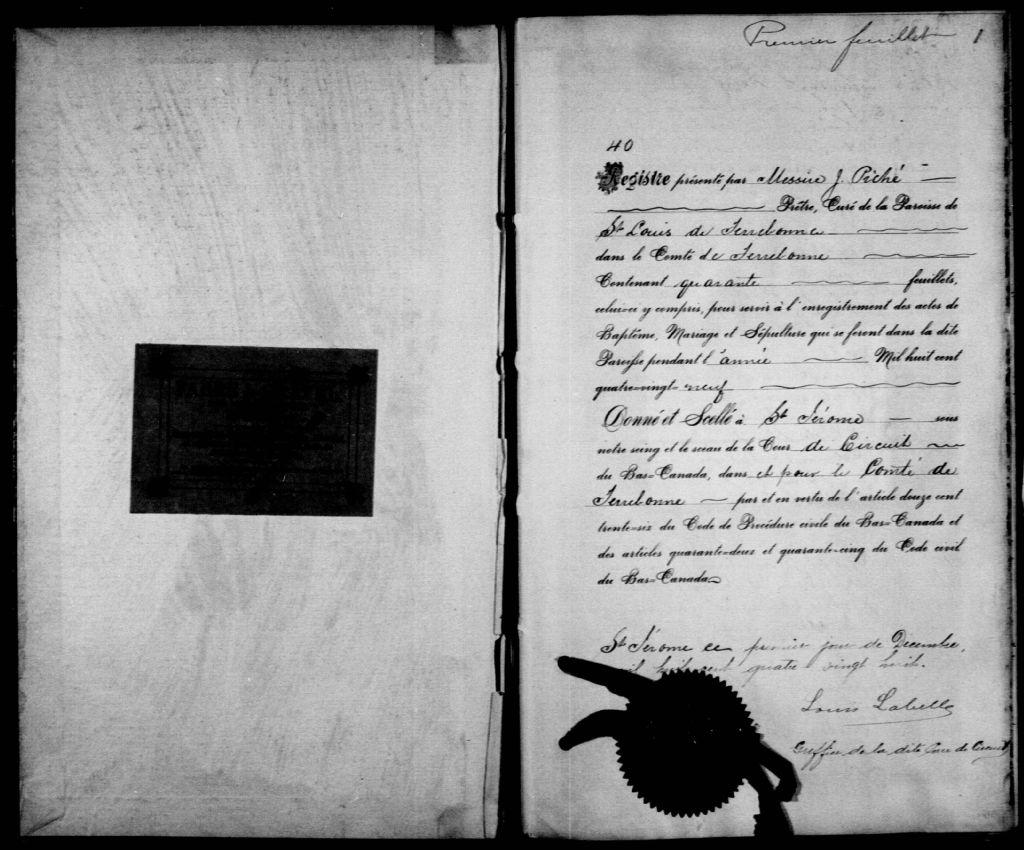 Premier feuillet 1
40
Registre présenté par Messire J. Piché
Prêtre, Curé de la Paroisse de
St Louis de Terrebonne
dans le Comté de Terrebonne
Contenant quarante feuillets,
celui-ci y compris, pour servir à l'enregistrement des actes de
Baptême, Mariage et Sépulture qui se feront dans la dite
Paroisse pendant l'année Mil huit cent
quatre-vingt-neuf
Donné et Scellé à St Jérome sous
notre seing et le sceau de la Cour de Circuit
du Bas-Canada, dans et pour le Comté de
Terrebonne par et en vertu de l'article douze cent
trente-six du Code de Procédure civile du Bas-Canada et
des articles quarante-deux et quarante-cinq du Code civil
du Bas-Canada
St Jérome ce premier jour de Décembre,
mil huit cent quatre vingt huit.
Louis Labelle
Greffier de la dite Cour de Circuit